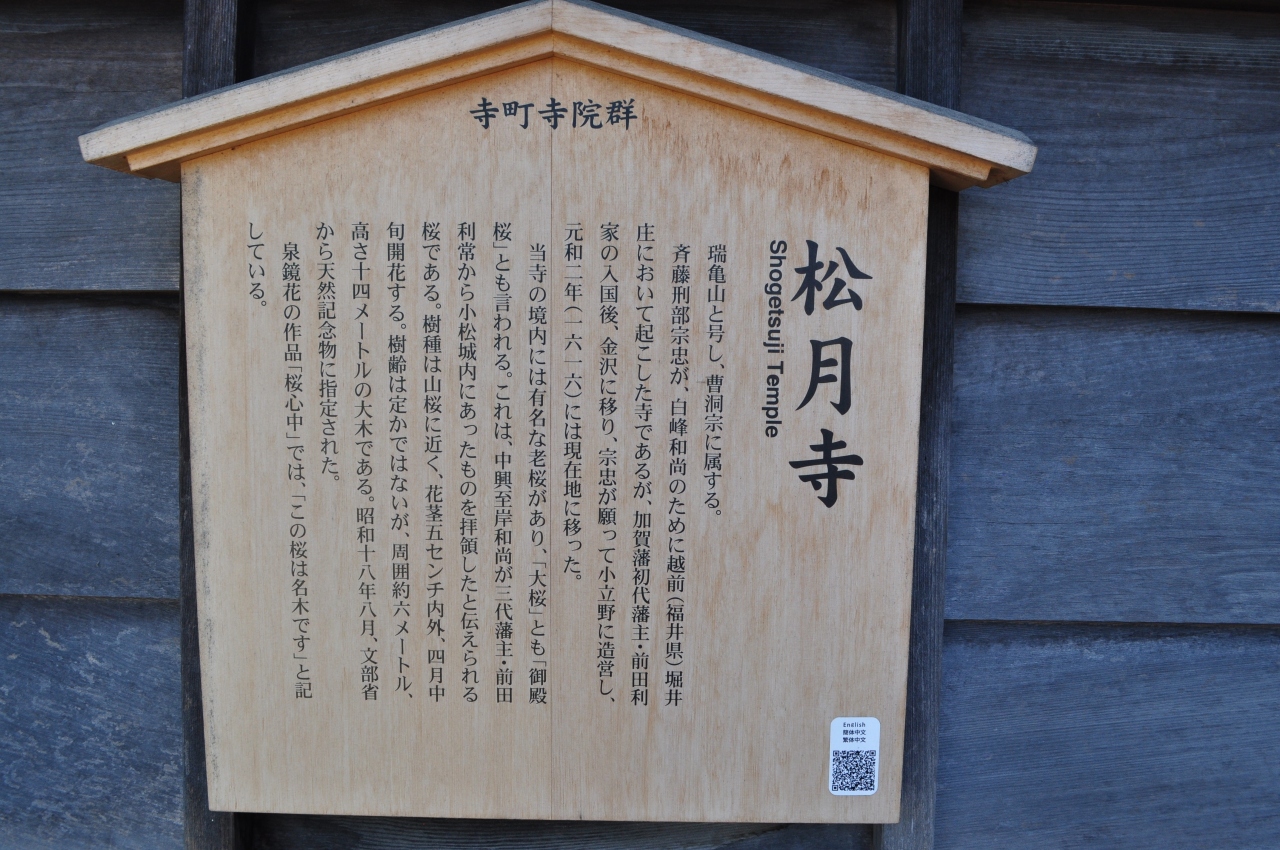 寺町寺院群
松月寺
Shogetsuji Temple
瑞亀山と号し、曹洞宗に属する。
斉藤刑部宗忠が、白峰和尚のために越前（福井県）堀井
庄において起こした寺であるが、加賀藩初代藩主・前田利
家の入国後、金沢に移り、宗忠が願って小立野に造営し、
元和二年（一六一六）には現在地に移った。
当寺の境内には有名な老桜があり、「大桜」とも「御殿
桜」とも言われる。これは、中興至岸和尚が三代藩主・前田
利常から小松城内にあったものを拝領したと伝えられる
桜である。樹種は山桜に近く、花茎五センチ内外、四月中
旬開花する。樹齢は定かではないが、周囲約六メートル、
高さ十四メートルの大木である。昭和十八年八月、文部省
から天然記念物に指定された。
泉鏡花の作品「桜心中」では、「この桜は名木です」と記
している。
English
簡体中文
繁体中文